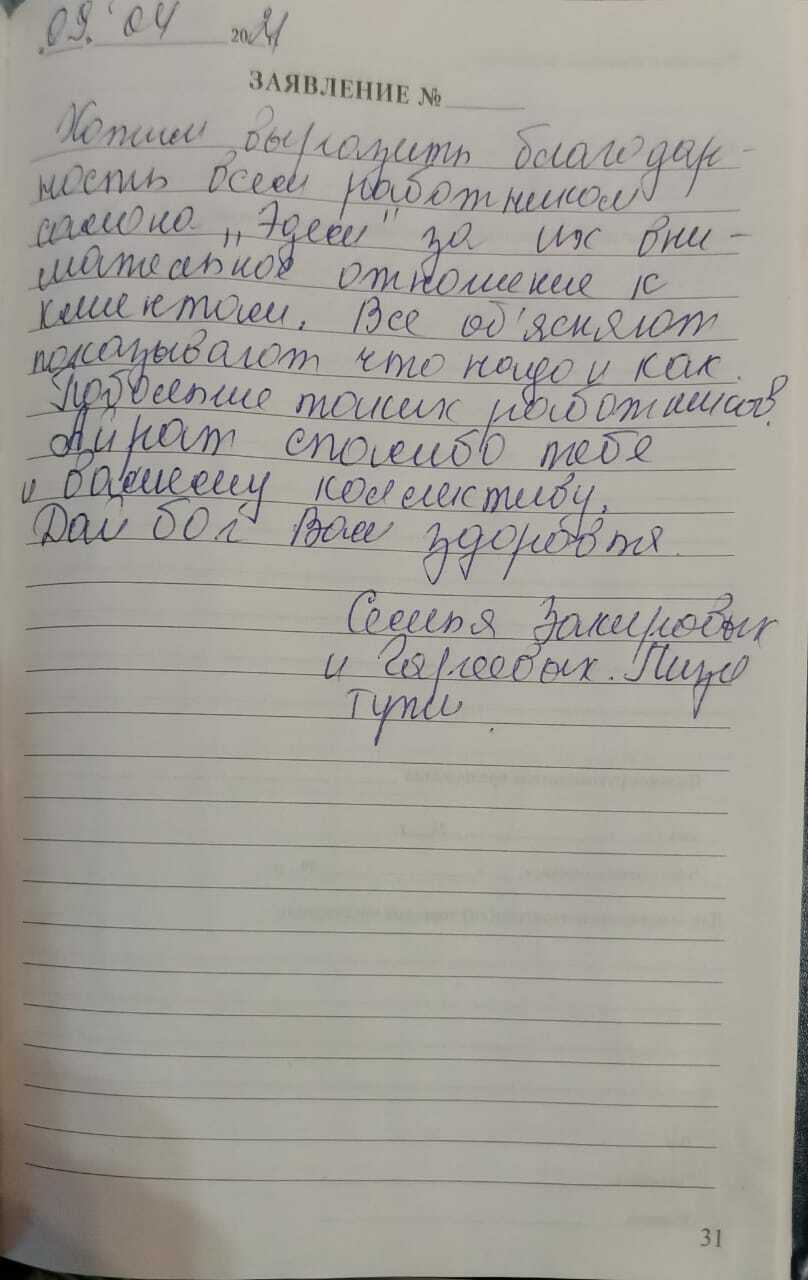 09. 04 2021
ЗАЯВЛЕНИЕ №
Хотим выразить благодар-
ность всем работникам
салона „Эдем" за их вни-
мательное отношение к
клиентам. Все об'ясняют
показывают что надо и как.
Побольше таких работников.
Айрат спасибо тебе
и вашему коллективу.
Дай бог Вам здоровья.
Семья Закировых
и Гареевых.
31